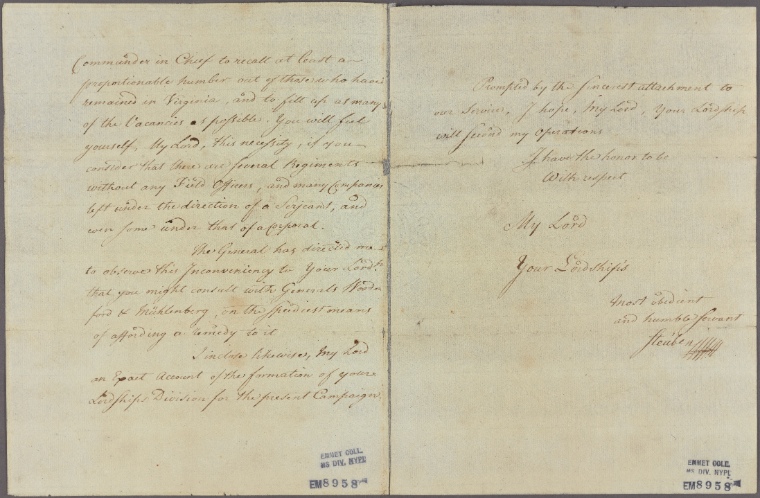 Commander in Chief to recall at least a
proportionable number out of those who have
remained in Virginia, and to fill up as many
of the Vacancies as possible. You will feel
yourself, My Lord, this necessity, if you
consider that there are several Regiments
without any Field Officers, and many Companies
left under the direction of a Serjeant, and
even some under that of a Corporal.
The General has directed me
to observe this Inconveniency to Your Lordp.
that you might consult with Generals Wood
ford & Muhlenberg, on the speediest means
of affording a remedy to it
I inclose likewise, My Lord
an Exact Account of the formation of your
Lordships Division for the present Campaign.
EMMET COLL.
MS DIV. NYPL
EM8958
Prompted by the sincerest attachment to
our Service, I hope, My Lord, Your Lordship
will second my Operations
I have the honor to be
With respect
My Lord
Your Lordship's
most obedient
and humble Servant
Steuben
EMMET COLL.
MS DIV. NYPL
EM8958